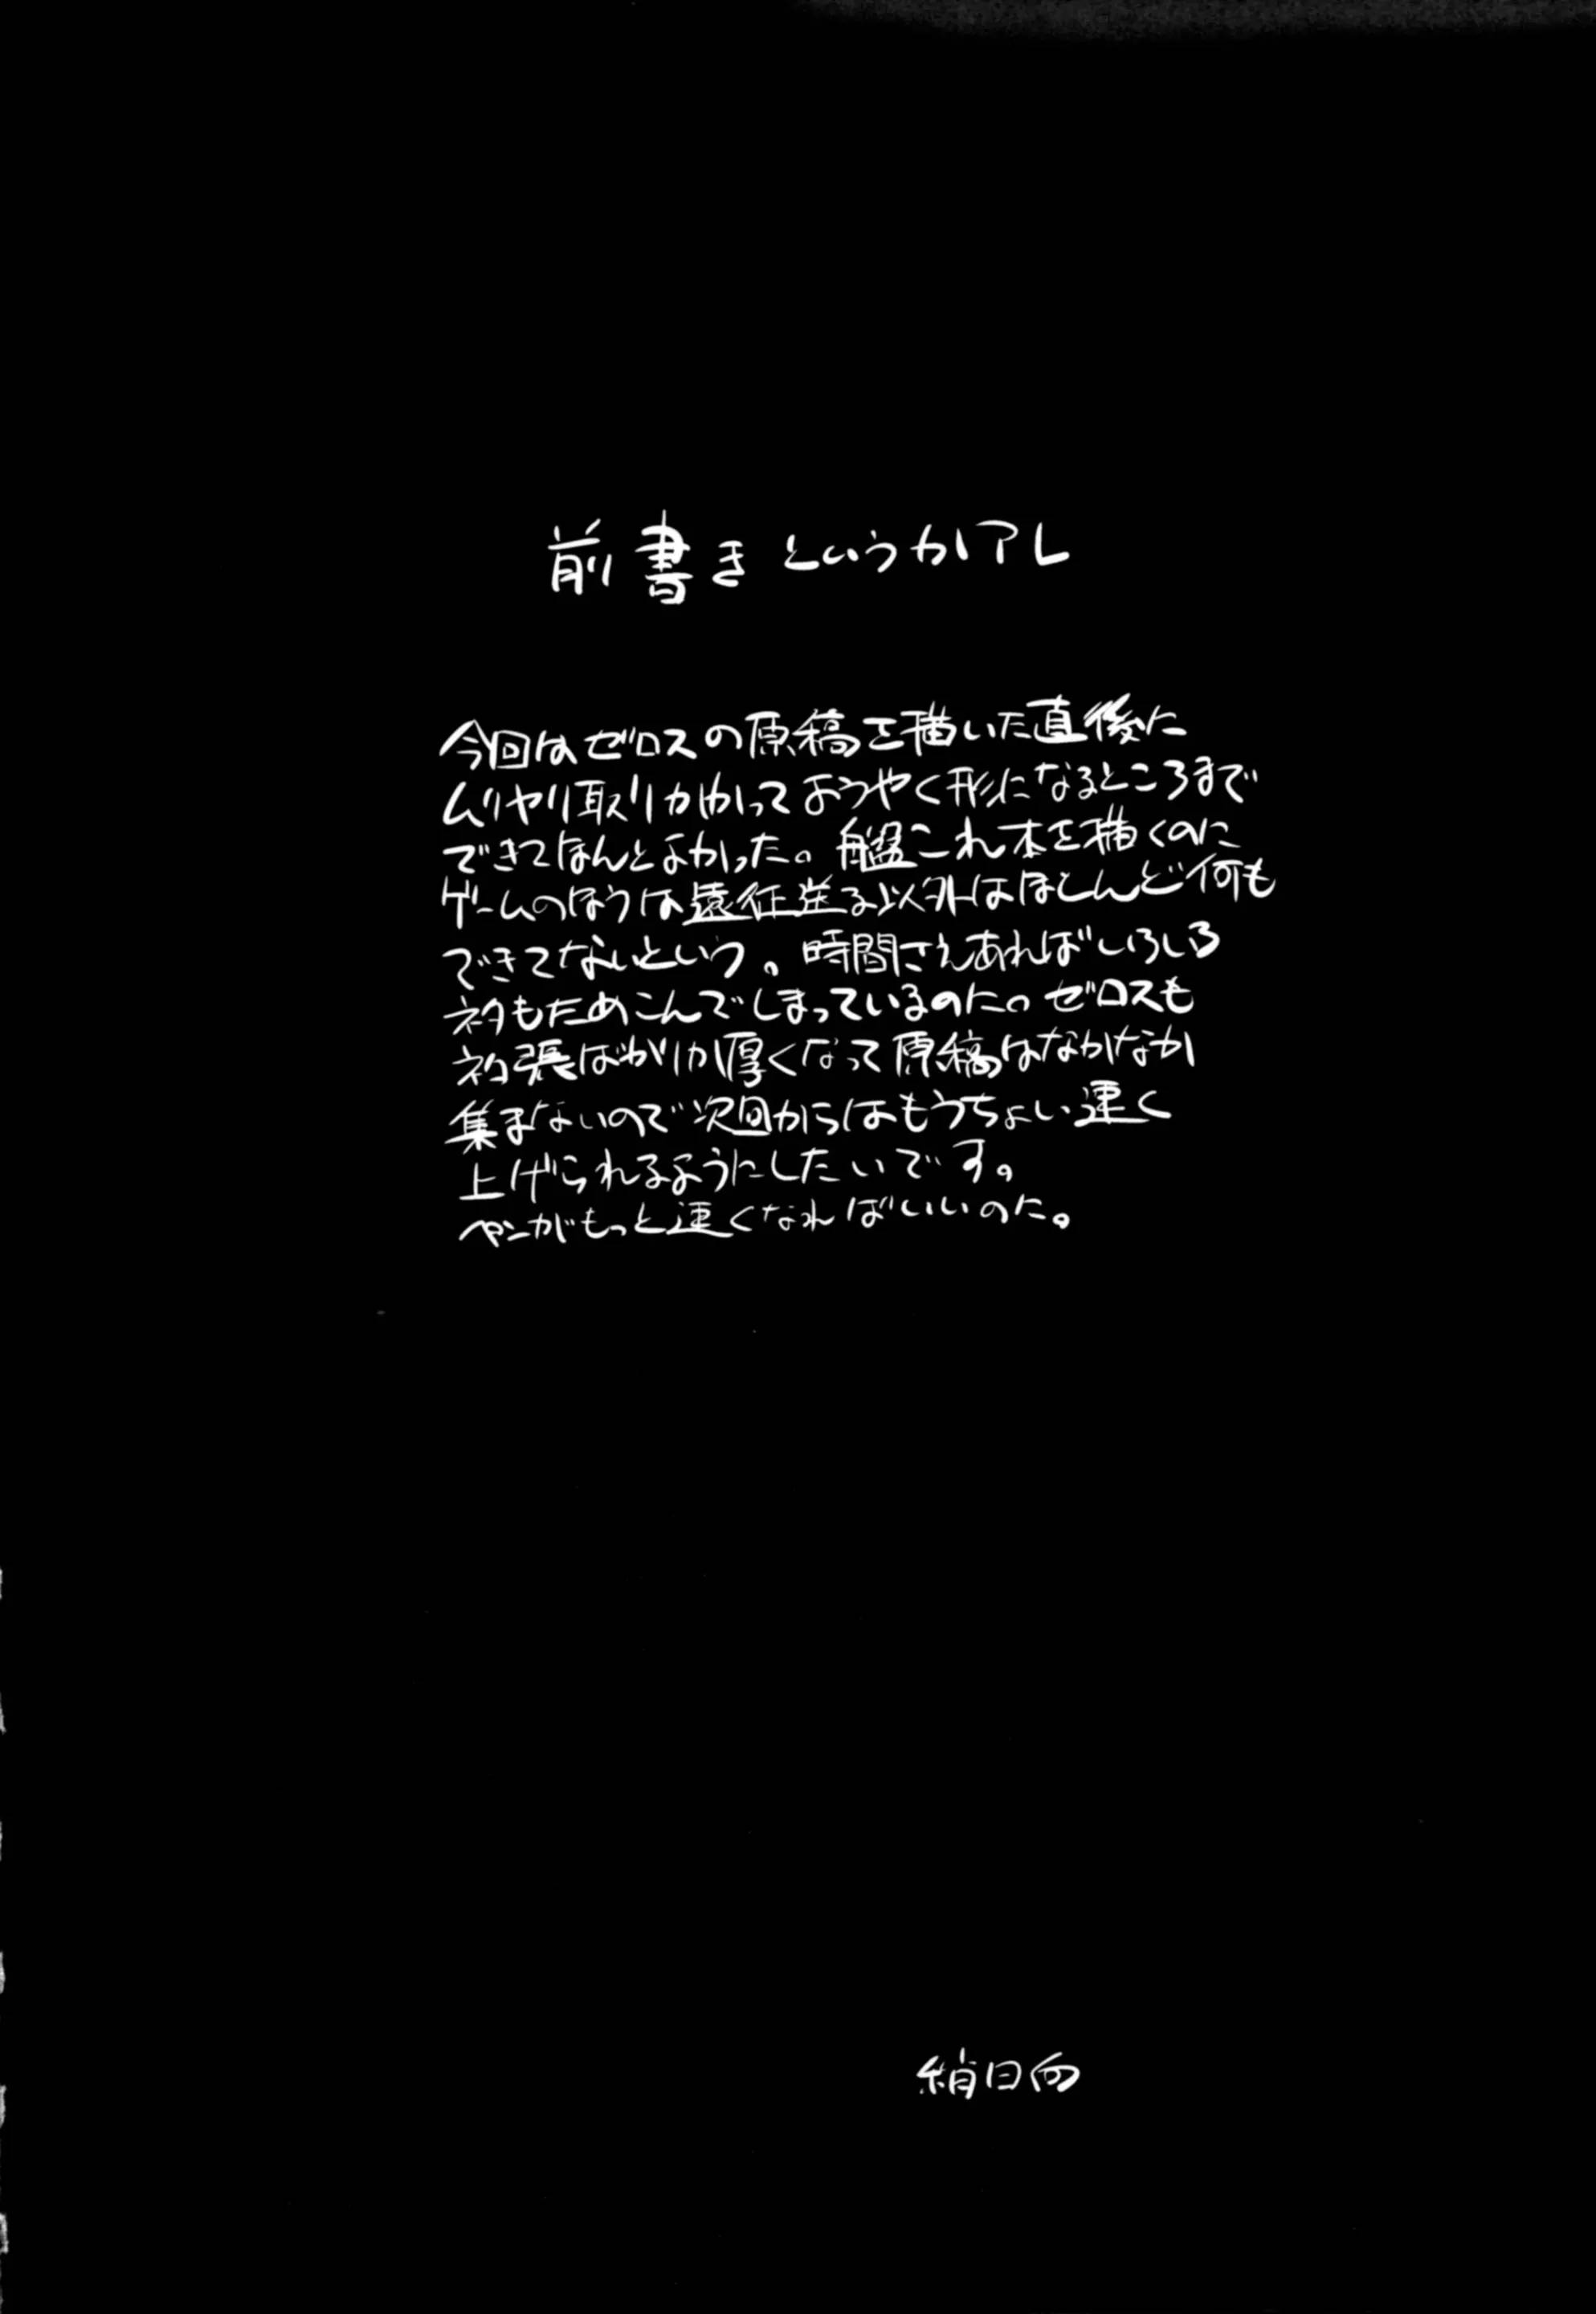 前書きというかアレ
今回はゼロスの原稿を描いた直後に
ムリヤリ取りかかってようやく形になるところまで
できてほんとよかった。艦これ本を描くのに
ゲームのほうは遠征送る以外はほとんど何も
できてないという。時間さえあればいろいろ
ネタもためこんでしまっているのに。ゼロスも
ネタ張ばかりが厚くなって原稿はなかなか
集まないので次回からはもうちょい速く
上げられるようにしたいです。
ペンがもっと速くなればいいのに。
梢日向